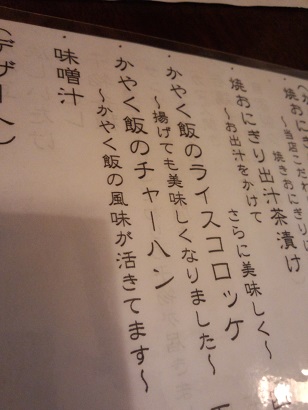 焼おにぎり
〜当店こだ
焼きおにぎり
焼おにぎり出汁茶漬け
〜お出汁をかけて
さらに美味しく〜
・かやく飯のライスコロッケ
〜揚げても美味しくなりました〜
・かやく飯のチャーハン
〜かやく飯の風味が活きてます〜
・味噌汁
(デザート)